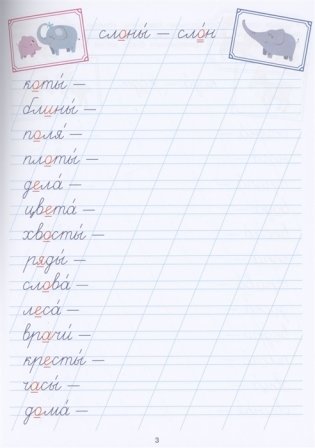 слоны́ — сло́н
коты́ —
блины́ —
поля́ —
плоты́ —
дела́ —
цвета́ —
хвосты́ —
ряды́ —
слова́ —
леса́ —
врачи́ —
кресты́ —
часы́ —
дома́ —
3